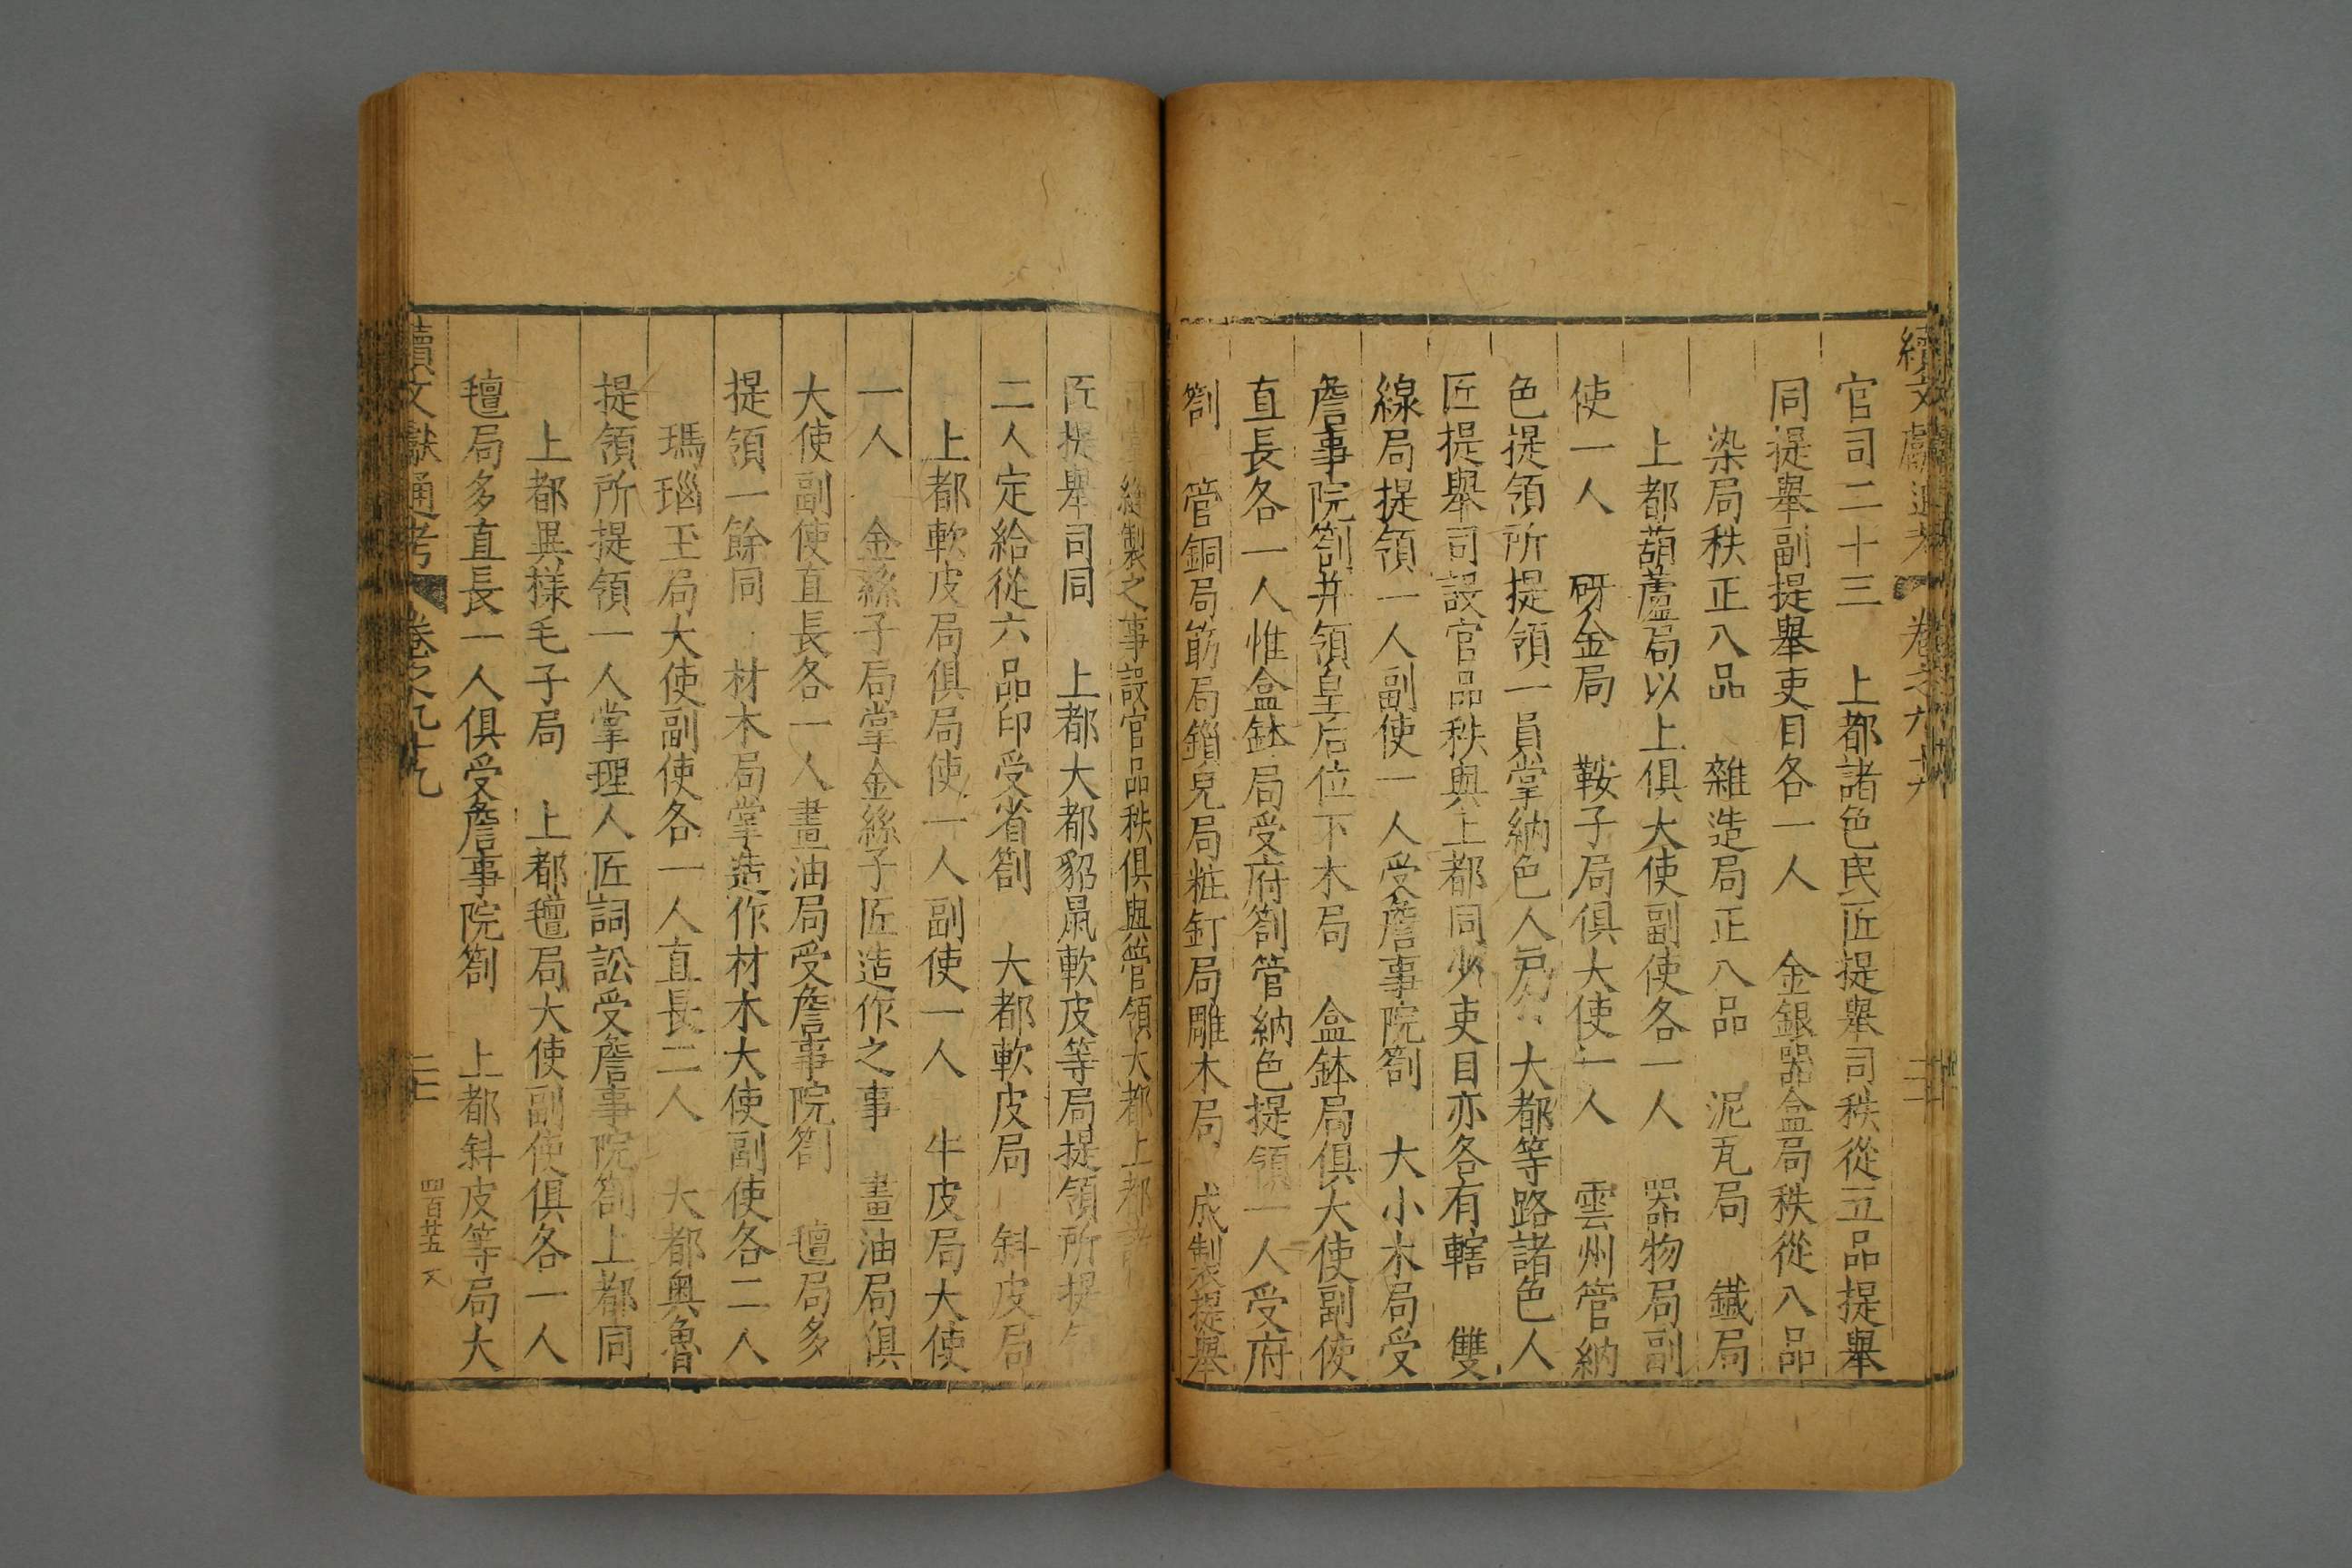 續文獻通考 卷之九十九
官司二十三 上都諸色民匠提舉司秩從五品提舉
同提舉副提舉吏目各一人 金銀器盒局秩從八品
染局秩正八品 雜造局正八品 泥瓦局 鐵局
上都葫蘆局以上俱大使副使各一人 器物局副
使一人 砑金局 鞍子局俱大使一人 雲州管納
色提領所提領一員掌納色人戶 大都等路諸色人
匠提舉司設官品秩與上都同 吏目亦各有轄 雙
線局提領一人副使一人受詹事院劄 大小木局受
詹事院劄并領皇后位下木局 盒鉢局俱大使副使
直長各一人惟盒鉢局受府劄管納色提領一人受府
劄 管銅局筯局鎖兒局粧釘局雕木局 成製提舉
縫製之事設官品秩俱與管領大都上都
匠提舉司同 上都大都貂鼠軟皮等局提領所提
二人定給從六品印受省劄 大都軟皮局 斜皮局
上都軟皮局俱局使一人副使一人 牛皮局大使
一人 金絲子局掌金絲子匠造作之事 畫油局俱
大使副使直長各一人畫油局受詹事院劄 氊局多
提領一餘同 材木局掌造作材木大使副使各二人
瑪瑙玉局大使副使各一人直長二人 大都奧魯
提領所提領一人掌理人匠詞訟受詹事院劄上都同
上都異樣毛子局 上都氊局大使副使俱各一人
氊局多直長一人俱受詹事院劄 上都斜皮等局大
續文獻通考 卷之九十九 四百廿五